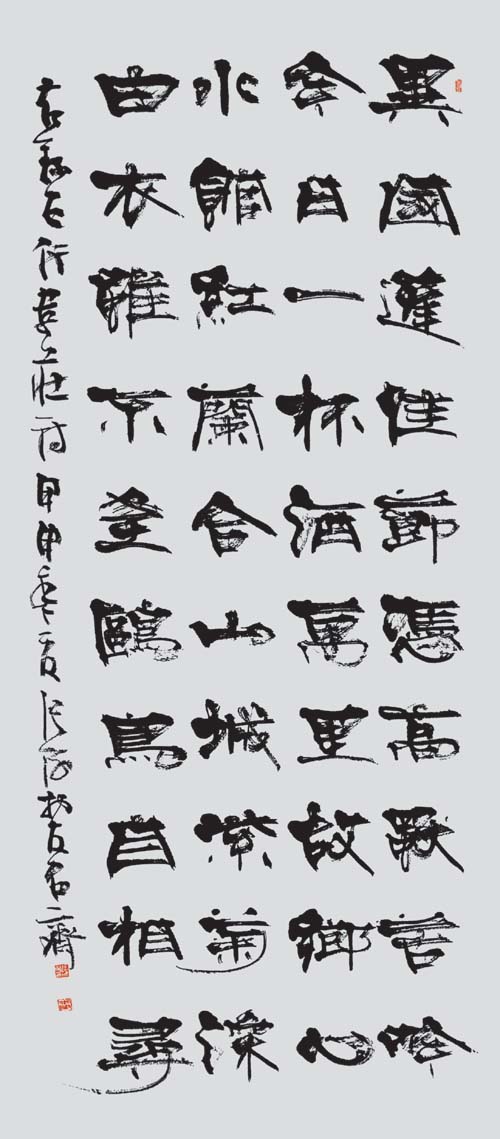 異國逢佳節憑高獨苦吟
今日一杯酒萬里故鄉心
水館紅蘭合山城紫菊深
白衣雖不至鷗鳥自相尋
韋莊詩甲申季夏